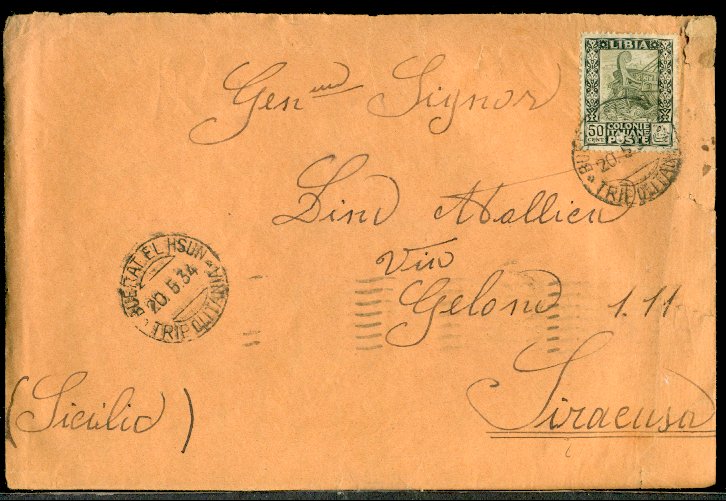 LIBIA
50 CENT
COLONIE
ITALIANE
POSTE
20.5.3
TRIPOLITAN
Gen.mo Signor
Dino Mallia
Via
Gelone 1.11
Siracusa
(Sicilia)
BUERAT EL HSUN
20.5.34
TRIPOLITANIA